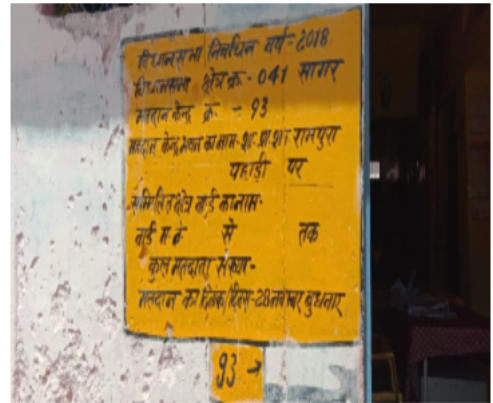 विधानसभा निर्वाचन वर्ष-2018
विधानसभा क्षेत्र क्र.- 041 सागर
मतदान केन्द्र क्र. - 93
मतदान केन्द्र भवन का नाम-शा. प्रा. शा. रामपुरा
पहाड़ी पर
सम्मिलित क्षेत्र वार्ड का नाम-
वार्ड म.क्रं से तक
कुल मतदाता संख्या-
मतदान का दिनांक/दिवस-28 नवम्बर बुधवार
93 →